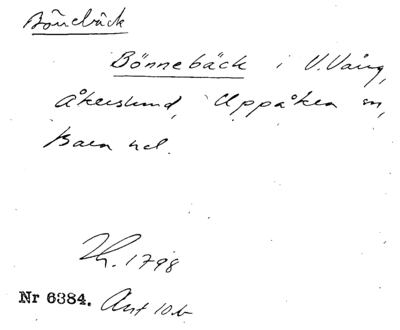 Bönebäck
Bönnebäck i V. Vång,
Åkerslund, Uppåkra sn,
Bara hd.
Lh. 1798
Nr 6384. Ant 10b